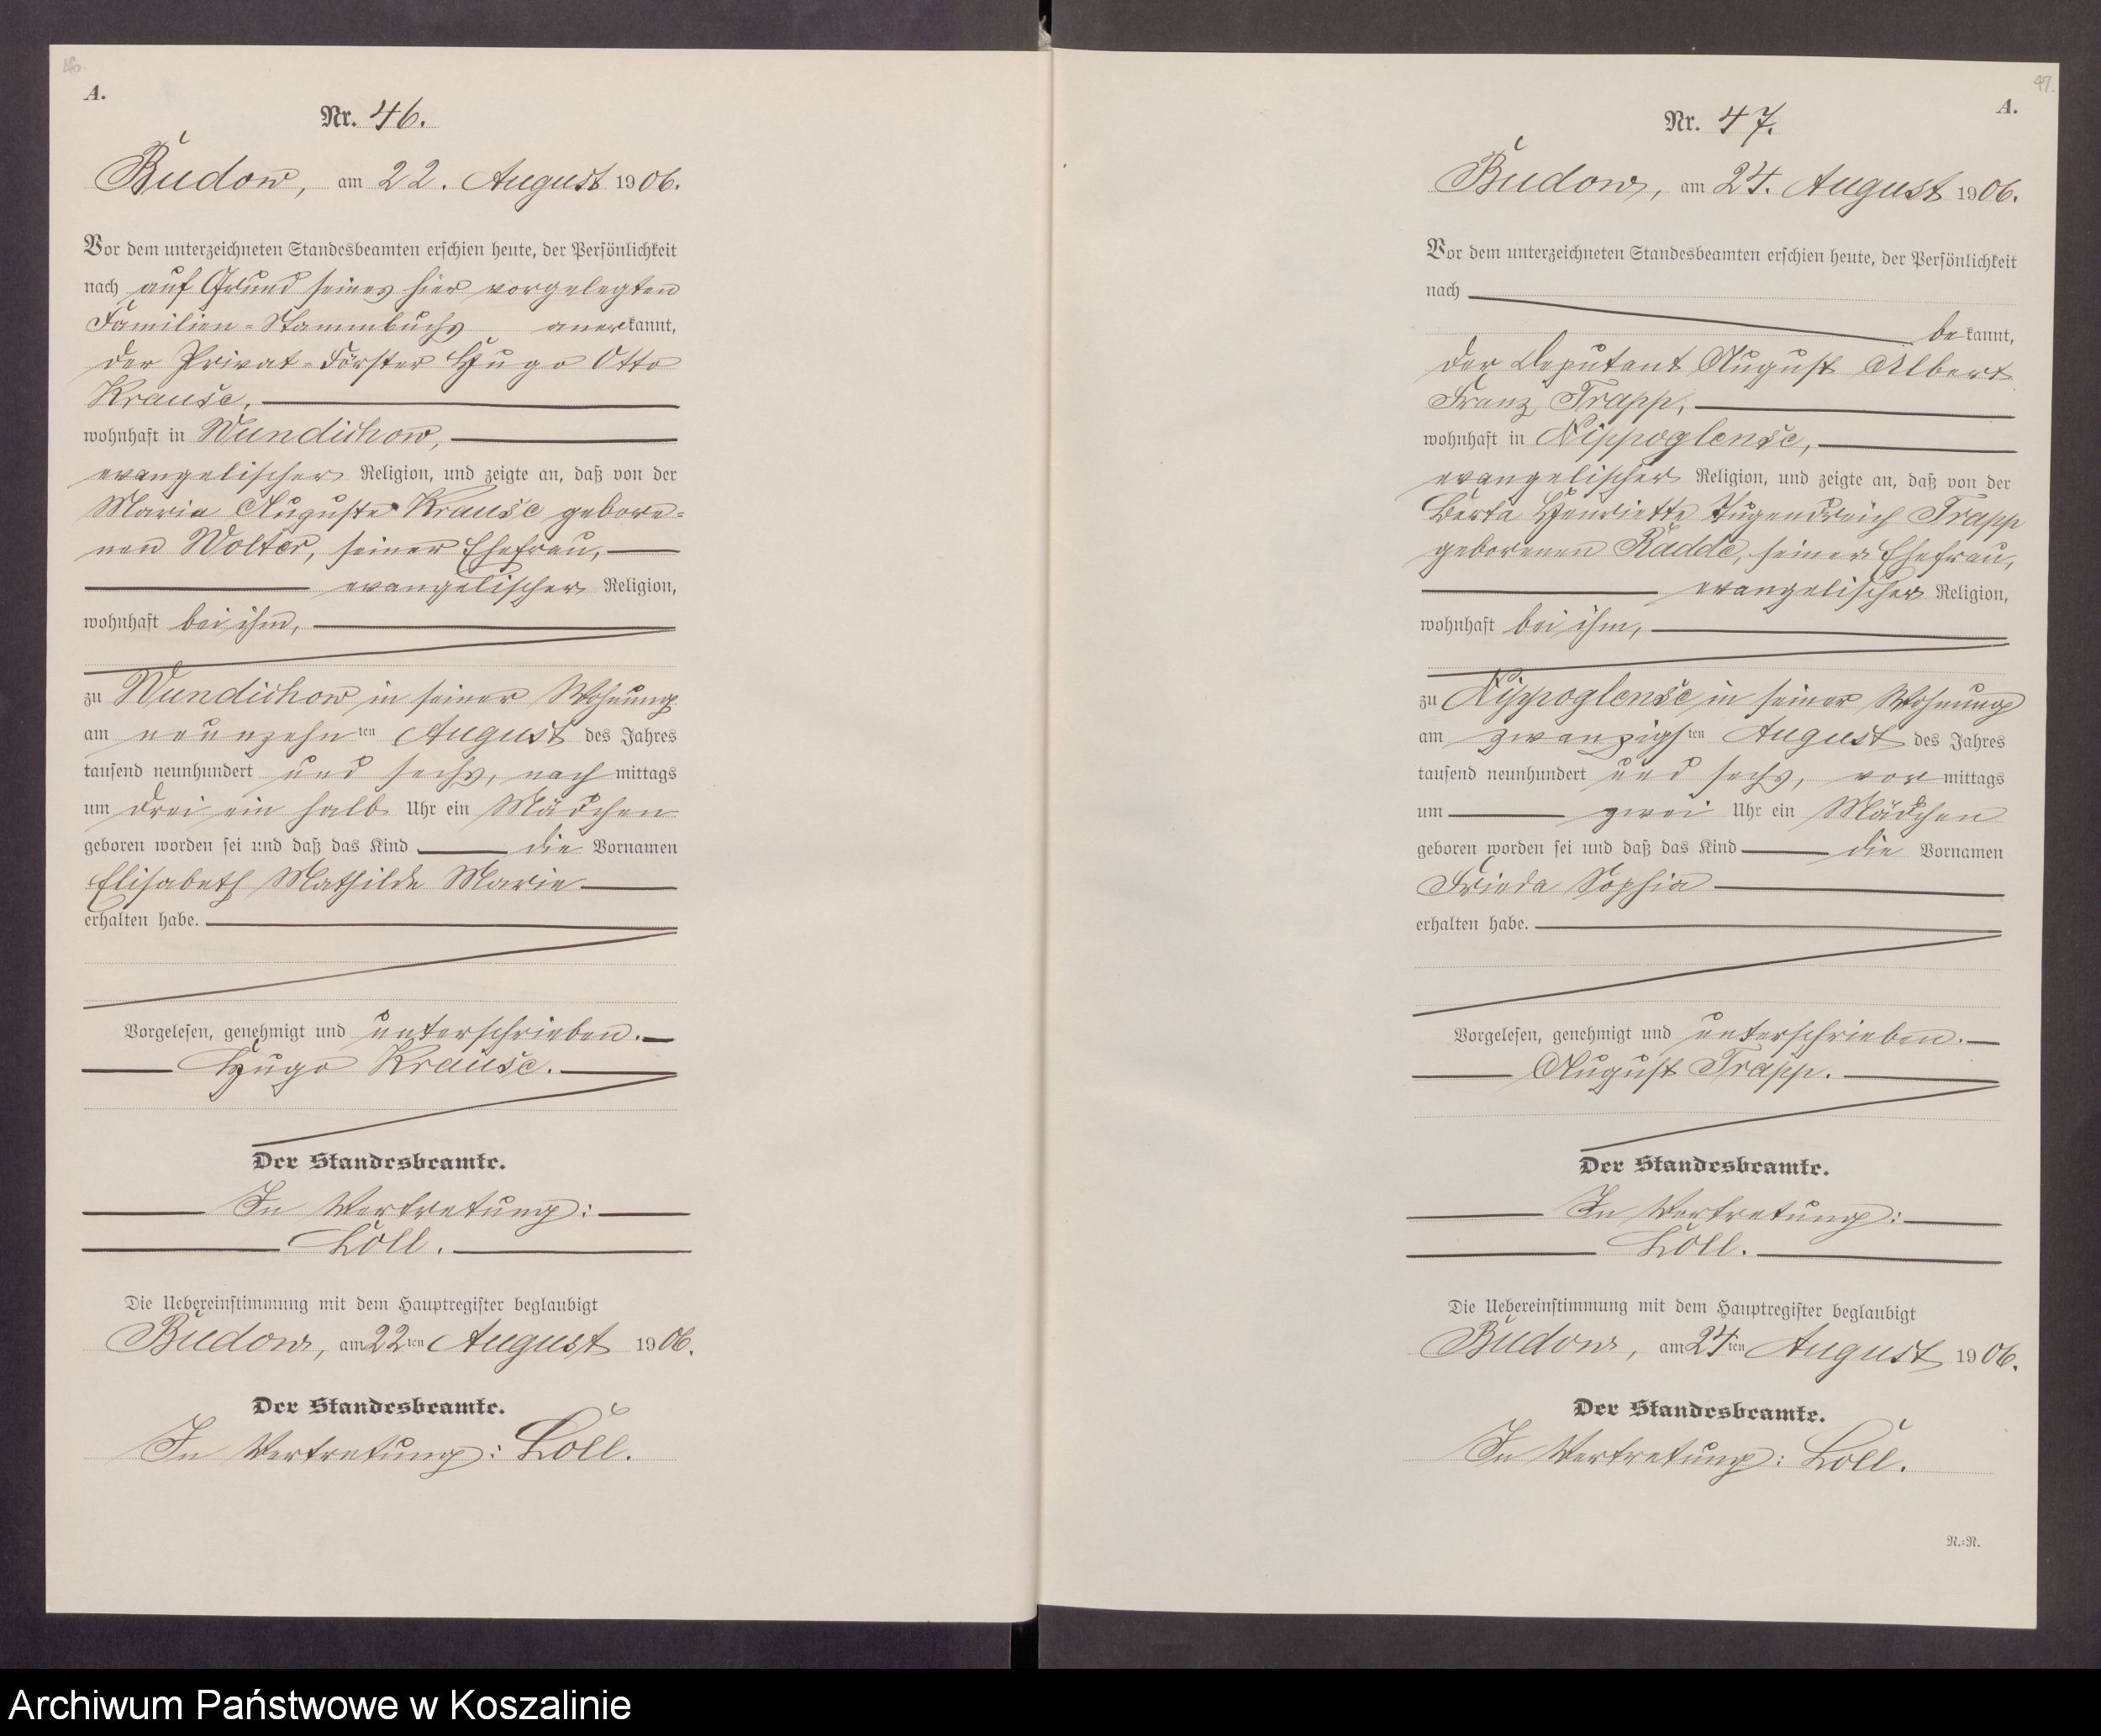 46.
A.
Nr. 46.
Budow, am 22. August 1906.
Vor dem unterzeichneten Standesbeamten erschien heute, der Persönlichkeit
nach auf Grund seines hier vorgelegten
Familien-Stammbuchs anerkannt,
der Privat-Förster Hugo Otto
Krause,
wohnhaft in Wundichow,
evangelischer Religion, und zeigte an, daß von der
Maria Auguste Krause gebore-
nen Wolter, seiner Ehefrau,
evangelischer Religion,
wohnhaft bei ihm,
zu Wundichow in seiner Wohnung
am neunzehnten August des Jahres
tausend neunhundert und sechs, nachmittags
um drei ein halb Uhr ein Mädchen
geboren worden sei und daß das Kind die Vornamen
Elisabeth Mathilde Marie
erhalten habe.
Vorgelesen, genehmigt und unterschrieben.
Hugo Krause.
Der Standesbeamte.
In Vertretung:
Löll.
Die Uebereinstimmung mit dem Hauptregister beglaubigt
Budow, am 22ten August 1906.
Der Standesbeamte.
In Vertretung: Löll.
47.
A.
Nr. 47.
Budow, am 24. August 1906.
Vor dem unterzeichneten Standesbeamten erschien heute, der Persönlichkeit
nach
bekannt,
der Deputant August Albert
Franz Trapp,
wohnhaft in Nippoglense,
evangelischer Religion, und zeigte an, daß von der
Berta Henriette Tugendreich Trapp
geborenen Radde, seiner Ehefrau,
evangelischer Religion,
wohnhaft bei ihm,
zu Nippoglense in seiner Wohnung
am zwanzigsten August des Jahres
tausend neunhundert und sechs, vormittags
um zwei Uhr ein Mädchen
geboren worden sei und daß das Kind die Vornamen
Frieda Sophia
erhalten habe.
Vorgelesen, genehmigt und unterschrieben.
August Trapp.
Der Standesbeamte.
In Vertretung:
Löll.
Die Uebereinstimmung mit dem Hauptregister beglaubigt
Budow, am 24ten August 1906.
Der Standesbeamte.
In Vertretung: Löll.
R.=R.
Archiwum Państwowe w Koszalinie